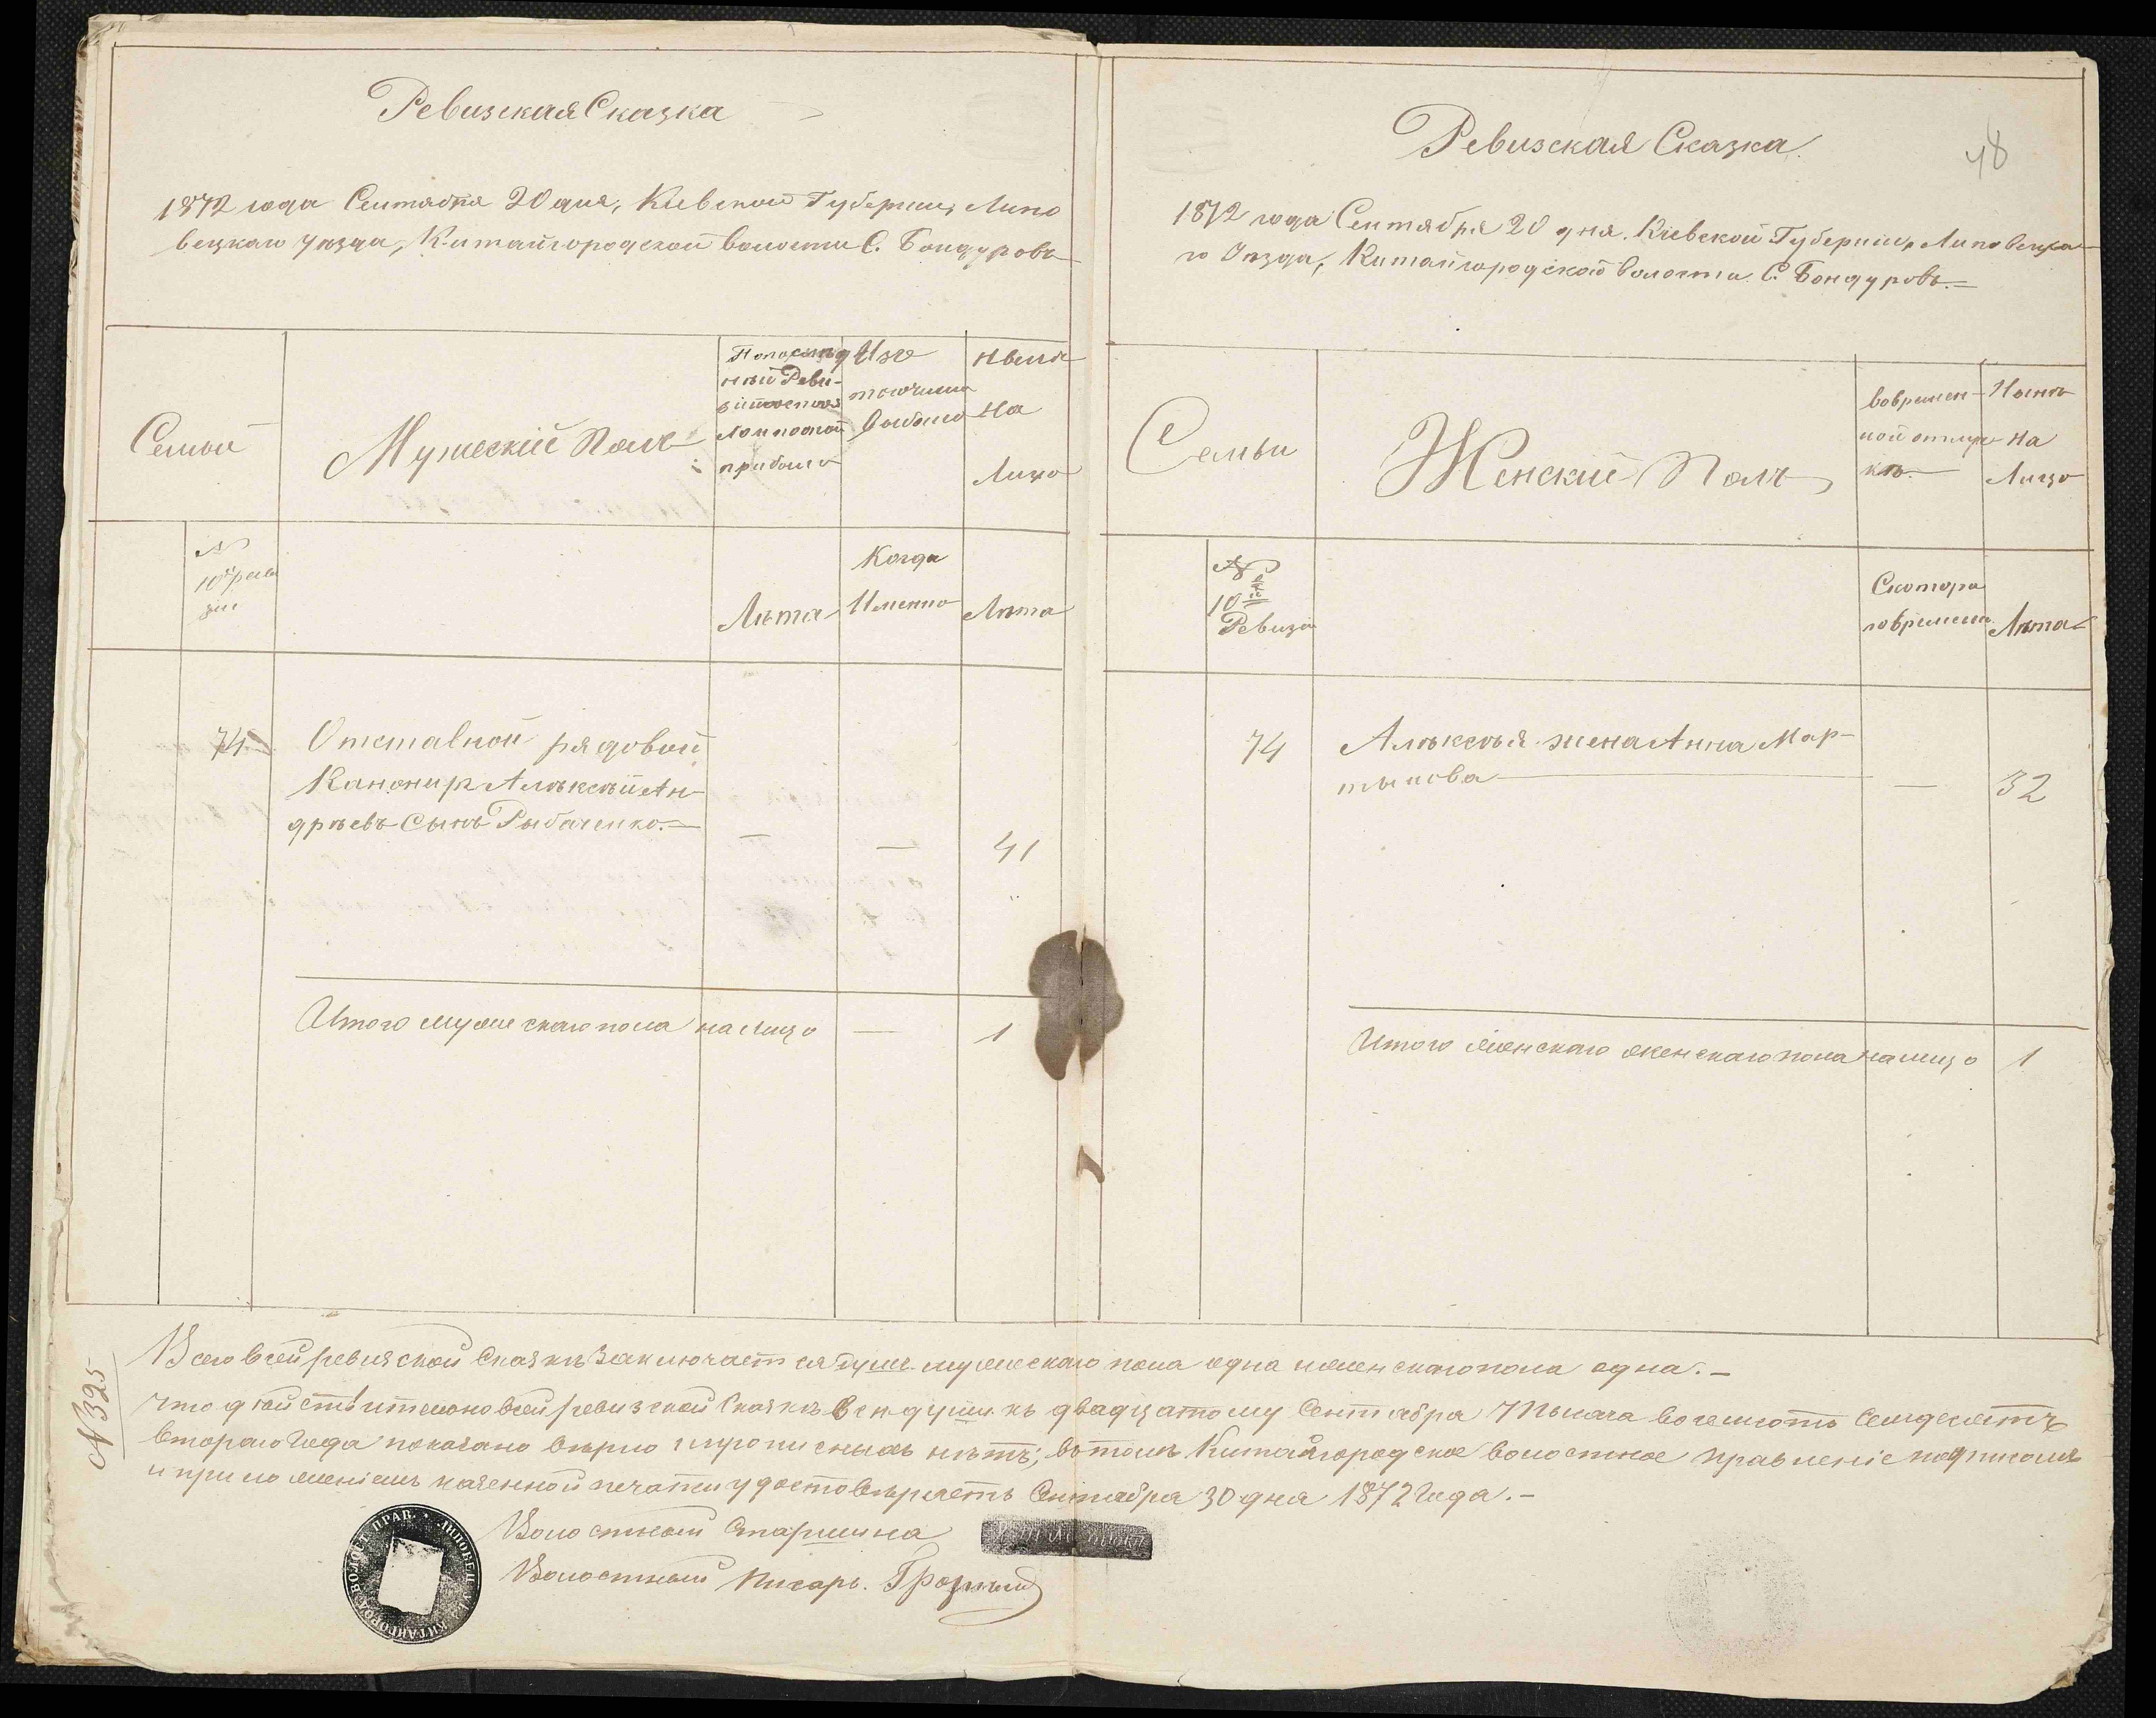 Ревизская Сказка
1872 года Сентября 20 дня, Кіевской Губерніи, Липо
вецкаго уѣзда, Китайгородской волости С. Бондуровъ
Семьи
Мужескій Полъ
По послѣд
ней Реви-
прибыло
Изъ
того числа
выбыло
Нынѣ
На
Лицо
№
10й реви
зіи
Лѣта
Когда
Именно
Лѣта
74
Отставной рядовой
Канониръ Алѣксѣй Ан-
дрѣевъ Сынъ Рыбаченко.—
—
—
41
Итого мужескаго пола на лицо — 1
Ревизская Сказка.
48
1872 года Сентября 20 дня. Кіевской Губерніи, Липовецка-
го Уѣзда, Китайгородской волости С. Бондуровъ.=
Семьи
Женскій Полъ
во времен-
ной отлуч-
кѣ.
Нынѣ
на
Лицо
№
10й
Ревизіи
Съкотора
го времени
Лѣта
74
Алѣксѣя жена Анна Мар-
тынова
—
32
Итого женскаго пола на лицо 1
Всего в сей ревизской Сказкѣ заключается душъ мужескаго пола одна и женскаго пола одна.—
№ 325
Что дѣйствительно в сей ревизской Сказкѣ всѣ души къ двадцатому Сентября Тысяча восемьсотъ семдесятъ
втораго Года показано вѣрно и прописныхъ нѣтъ; вътомъ Китайгородское волостное правленіе подписомъ
и приложеніемъ казенной печати удостовѣряетъ Сентября 30 дня 1872 Года.—
Волостный Старшина
Волостный Писарь. Грозный
КИТАЙГОРОД. ВОЛОСТ. ПРАВ. • ЛИПОВЕЦ. У.